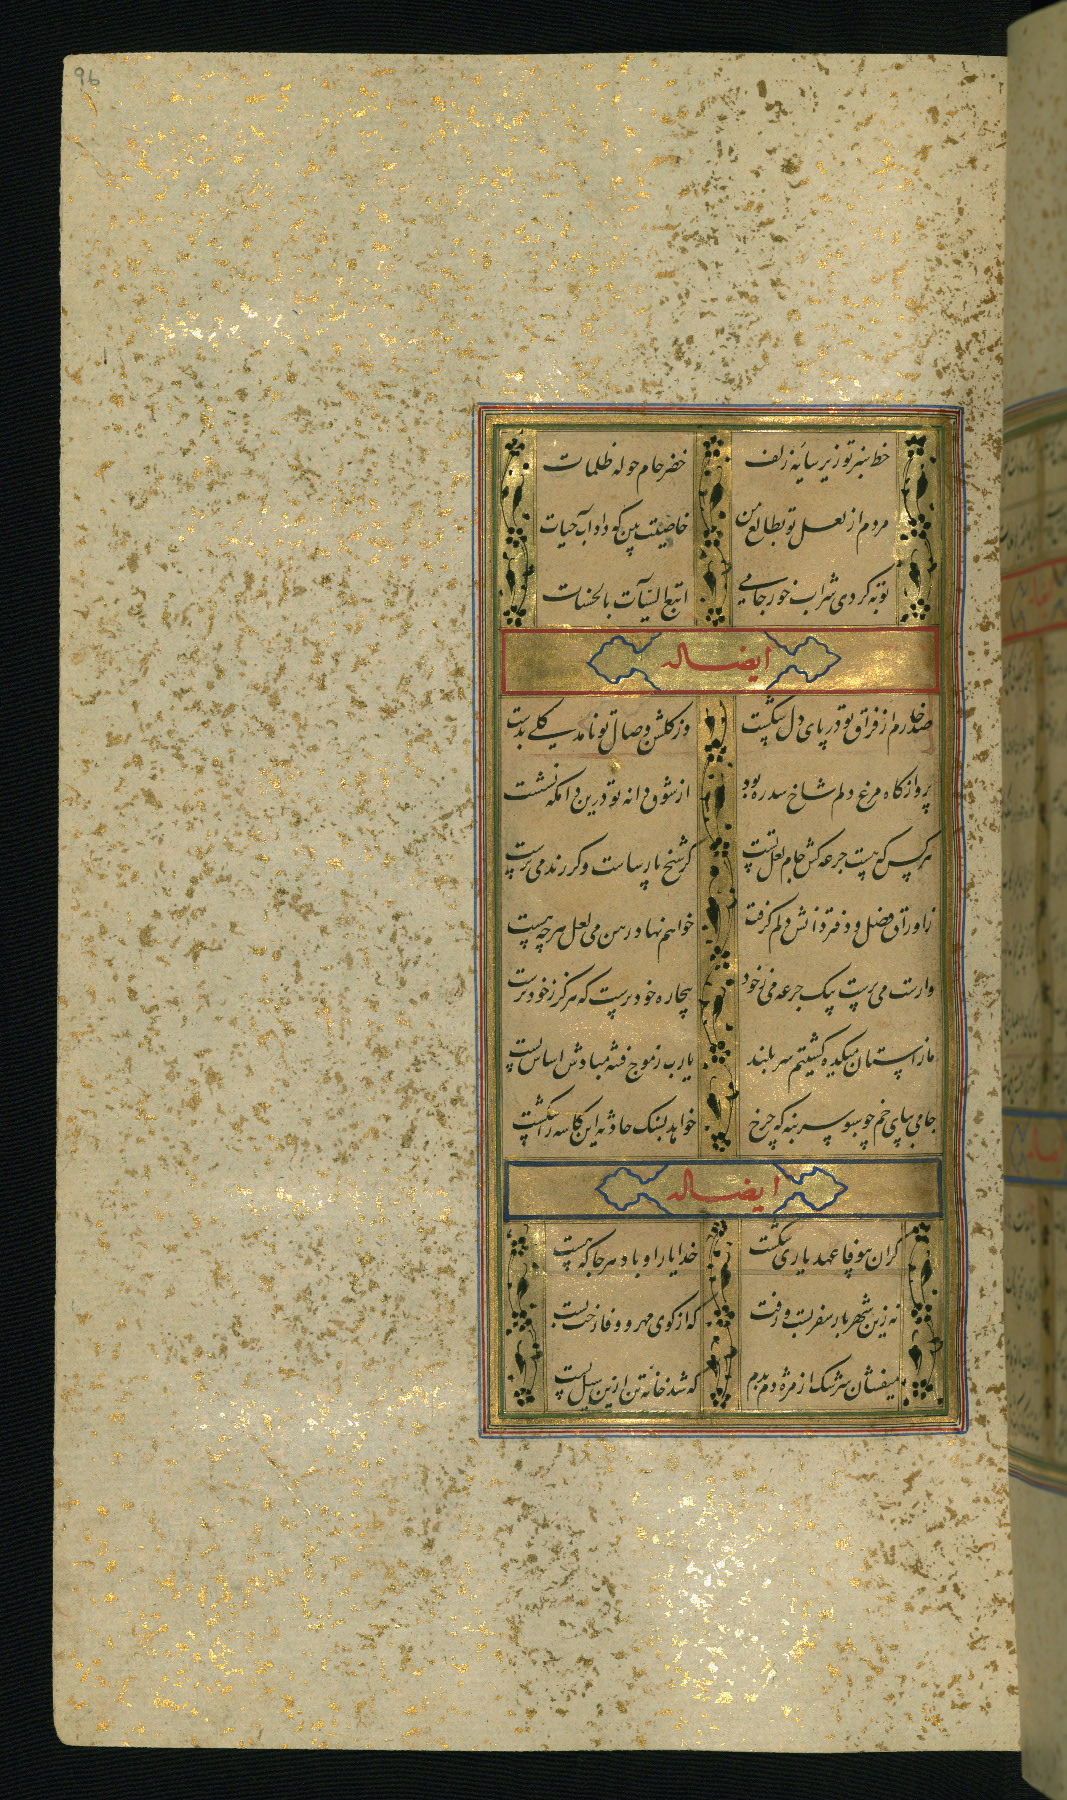 96
خط سبز تو زیر سایهٔ زلف خضر جام حوله ظلمات
مردم از لعل تو بطالع من خاصیت بین که داد آب حیات
توبه کردی شراب خور جامی اتبع السیآت بالحسنات
ایضاله
صد خارم از فراق تو در پای دل شکست وز گلشن وصال تو نامد گلی بدست
پروازگاه مرغ دلم شاخ سدره بود از شوق دانه تو درین دامگه نشست
هرکس که هست جرعه کش جام لعل تست گر شیخ پارساست وگر رند می پرست
ز اوراق فضل و دفتر دانش دلم گرفت خواهم نهاد رهن می لعل هرچه هست
وارست می پرست بیک جرعه می ز خود بیچاره خودپرست که هرگز ز خود نرست
ما ز آستان میکده گشتیم سربلند یارب ز موج فتنه مبادش اساس پست
جامی بپای خم چو سبو سر بنه که چرخ خواهد بسنک حادثه این کاسه را شکست
ایضاله
گر آن بیوفا عهد یاری شکست خدا یار او باد هرجا که هست
نه زین شهر بار سفر بست و رفت که از کوی مهر و وفا رخت بست
میفشان سرشک از مژه دم بدم که شد خانهٔ تن ازین سیل پست